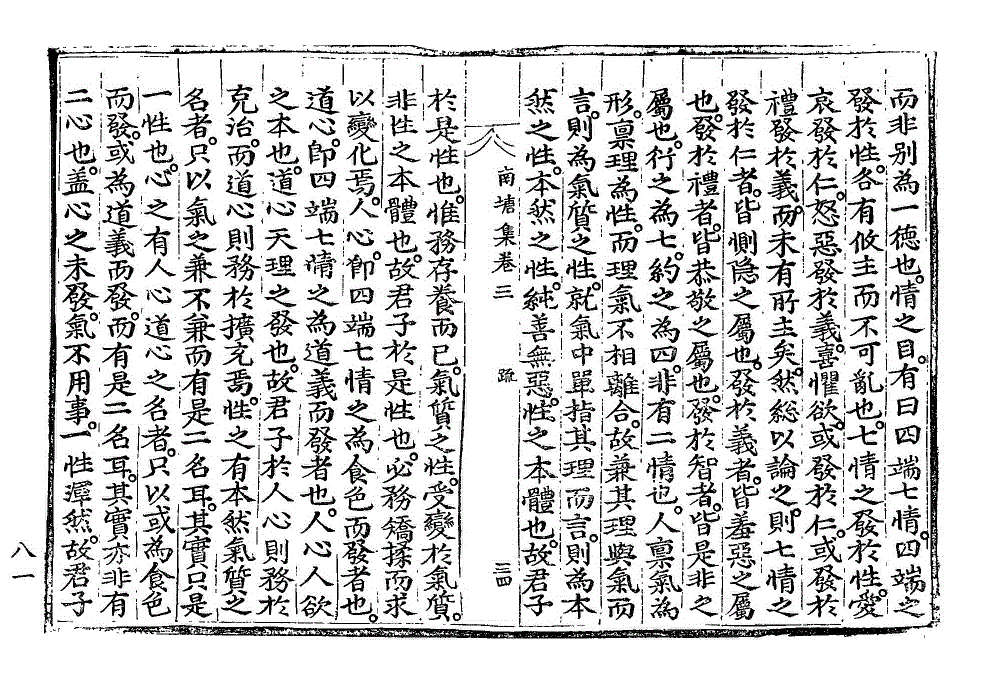 而非别為一德也。情之目。有曰四端七情。四端之
發於性。各有攸主而不可亂也。七情之發於性。愛
哀發於仁。怒惡發於義。喜懼欲。或發於仁。或發於
禮發於義。而未有所主矣。然総以論之。則七情之
發於仁者。皆惻隐之屬也。發於義者。皆羞惡之屬
也。發於禮者。皆恭敬之屬也。發於智者。皆是非之
屬也。行之為七。約之為四。非有二情也。人禀氣為
形。禀理為性。而理氣不相離合。故兼其理與氣而
言。則為氣質之性。就氣中單指其理而言。則為本
然之性。本然之性。純善無惡。性之本體也。故君子
南塘集卷三
疏
三四
於是性也。惟務存養而已。氣質之性。受變於氣質。
非性之本體也。故君子於是性也。必務矯揉而求
以變化焉。人心。卽四端七情之為食色而發者也。
道心。卽四端七情之為道義而發者也。人心人欲
之本也。道心天理之發也。故君子於人心則務於
克治。而道心則務於擴充焉。性之有本然氣質之
名者。只以氣之兼不兼而有是二名耳。其實只是
一性也。心之有人心道心之名者。只以或為食色
而發。或為道義而發。而有是二名耳。其實亦非有
二心也。盖心之未發。氣不用事。一性渾然。故君子
八一